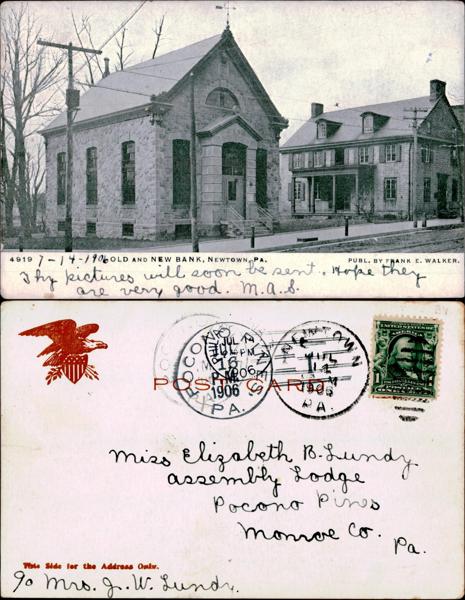 4919 7-14-1906 OLD AND NEW BANK, NEWTOWN, PA. PUBL. BY FRANK E. WALKER.
Thy pictures will soon be sent. Hope they
are very good. M.A.S.
POCONO PINES
JUL
16
P.M.
1906
PA.
NEWTOWN
JUL
14
1906
PA.
POST CARD
Miss Elizabeth B. Lundy
Assembly Lodge
Pocono Pines
Monroe Co.
Pa.
This Side for the Address Only.
℅ Mrs. J. W. Lundy.